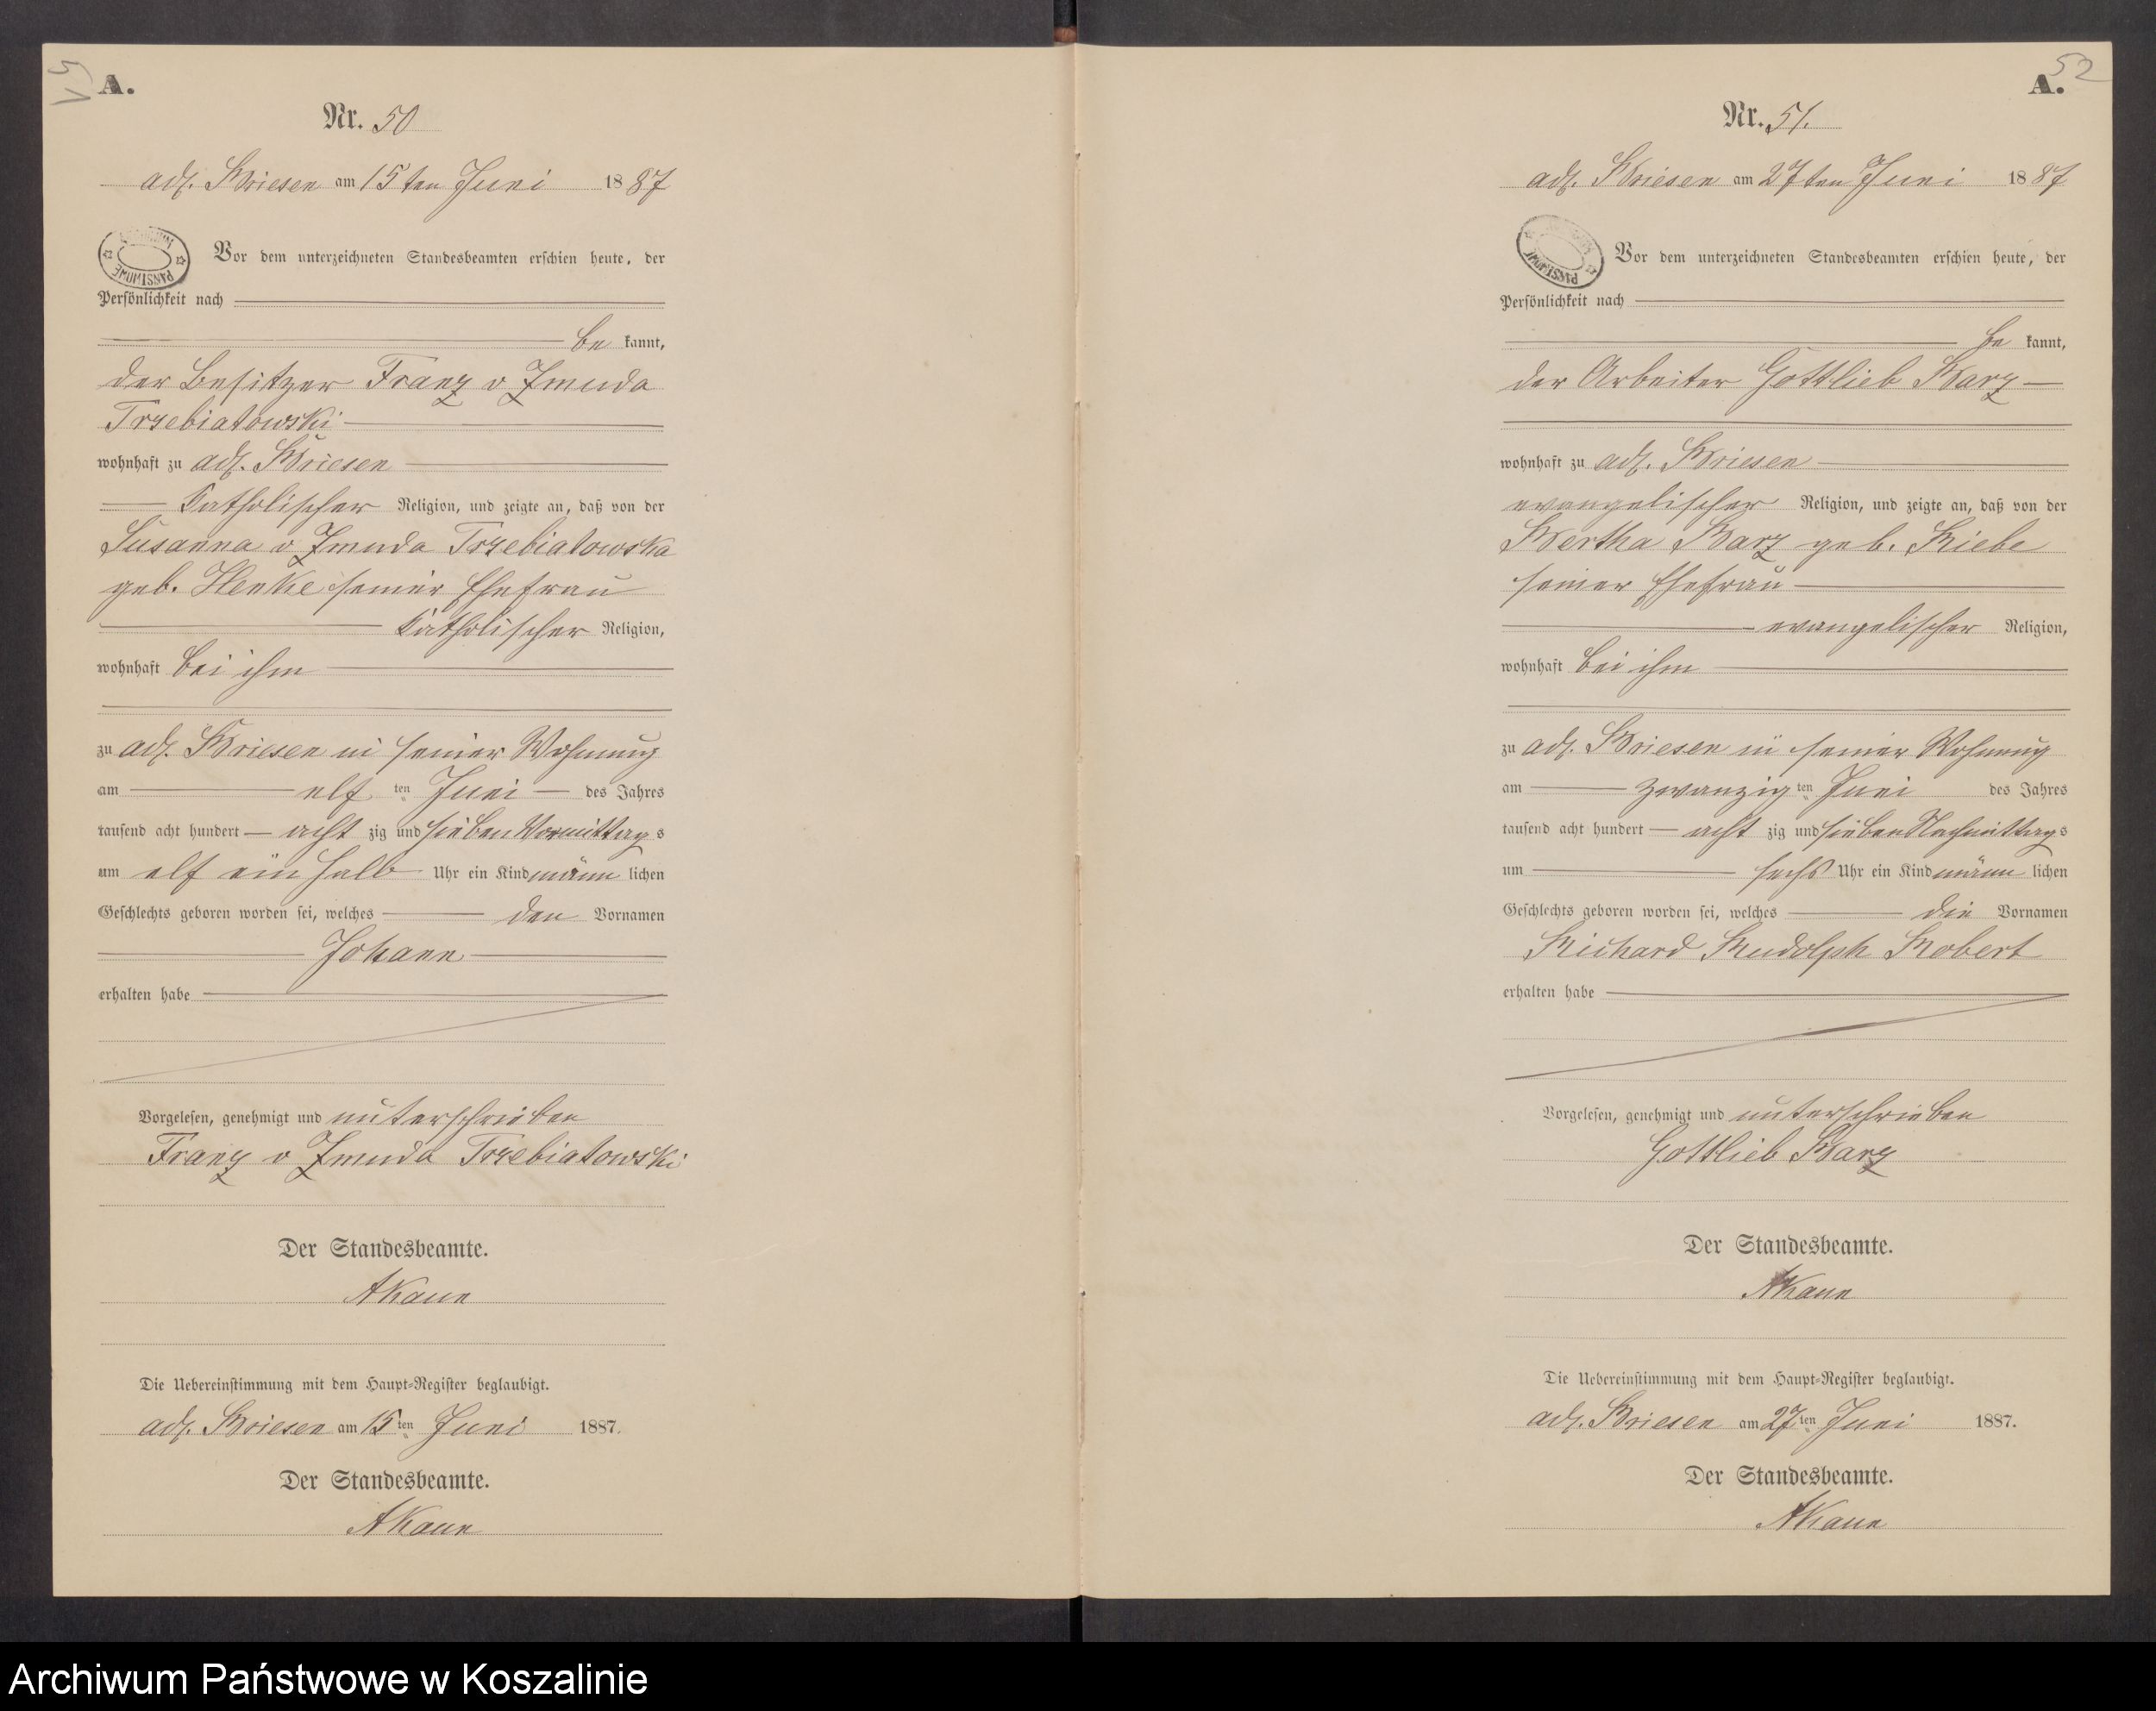 A.
Nr. 50
adl. Briesen am 15ten Juni 1887
Vor dem unterzeichneten Standesbeamten erschien heute, der
Persönlichkeit nach
be kannt,
der Besitzer Franz v Zmuda
Trzebiatowski
wohnhaft zu adl. Briesen
Katholischer Religion, und zeigte an, daß von der
Susanna v Zmuda Trzebiatowska
geb. Henke seiner Ehefrau
Katholischer Religion,
wohnhaft bei ihm
zu adl. Briesen in seiner Wohnung
am elf ten Juni des Jahres
tausend acht hundert acht zig und sieben Vormittags
um elf ein halb Uhr ein Kind männ lichen
Geschlechts geboren worden sei, welches den Vornamen
Johann
erhalten habe
Vorgelesen, genehmigt und unterschrieben
Franz v Zmuda Trzebiatowski
Der Standesbeamte.
Die Uebereinstimmung mit dem Haupt-Register beglaubigt.
adl. Briesen am 15ten Juni 1887.
Der Standesbeamte.
52
A.
Nr. 51.
adl. Briesen am 27ten Juni 1887
PAŃSTWOWE
Vor dem unterzeichneten Standesbeamten erschien heute, der
Persönlichkeit nach
be kannt,
der Arbeiter Gottlieb Barz
wohnhaft zu adl. Briesen
evangelischer Religion, und zeigte an, daß von der
Bertha Barz geb. Riebe
seiner Ehefrau
evangelischer Religion,
wohnhaft bei ihm
zu adl. Briesen in seiner Wohnung
am zwanzig ten Juni des Jahres
tausend acht hundert acht zig und sieben Nachmittags
um sechs Uhr ein Kind männ lichen
Geschlechts geboren worden sei, welches die Vornamen
Richard Rudolph Robert
erhalten habe
Vorgelesen, genehmigt und unterschrieben
Gottlieb Barz
Der Standesbeamte.
Die Uebereinstimmung mit dem Haupt-Register beglaubigt.
adl. Briesen am 27ten Juni 1887.
Der Standesbeamte.
Archiwum Państwowe w Koszalinie